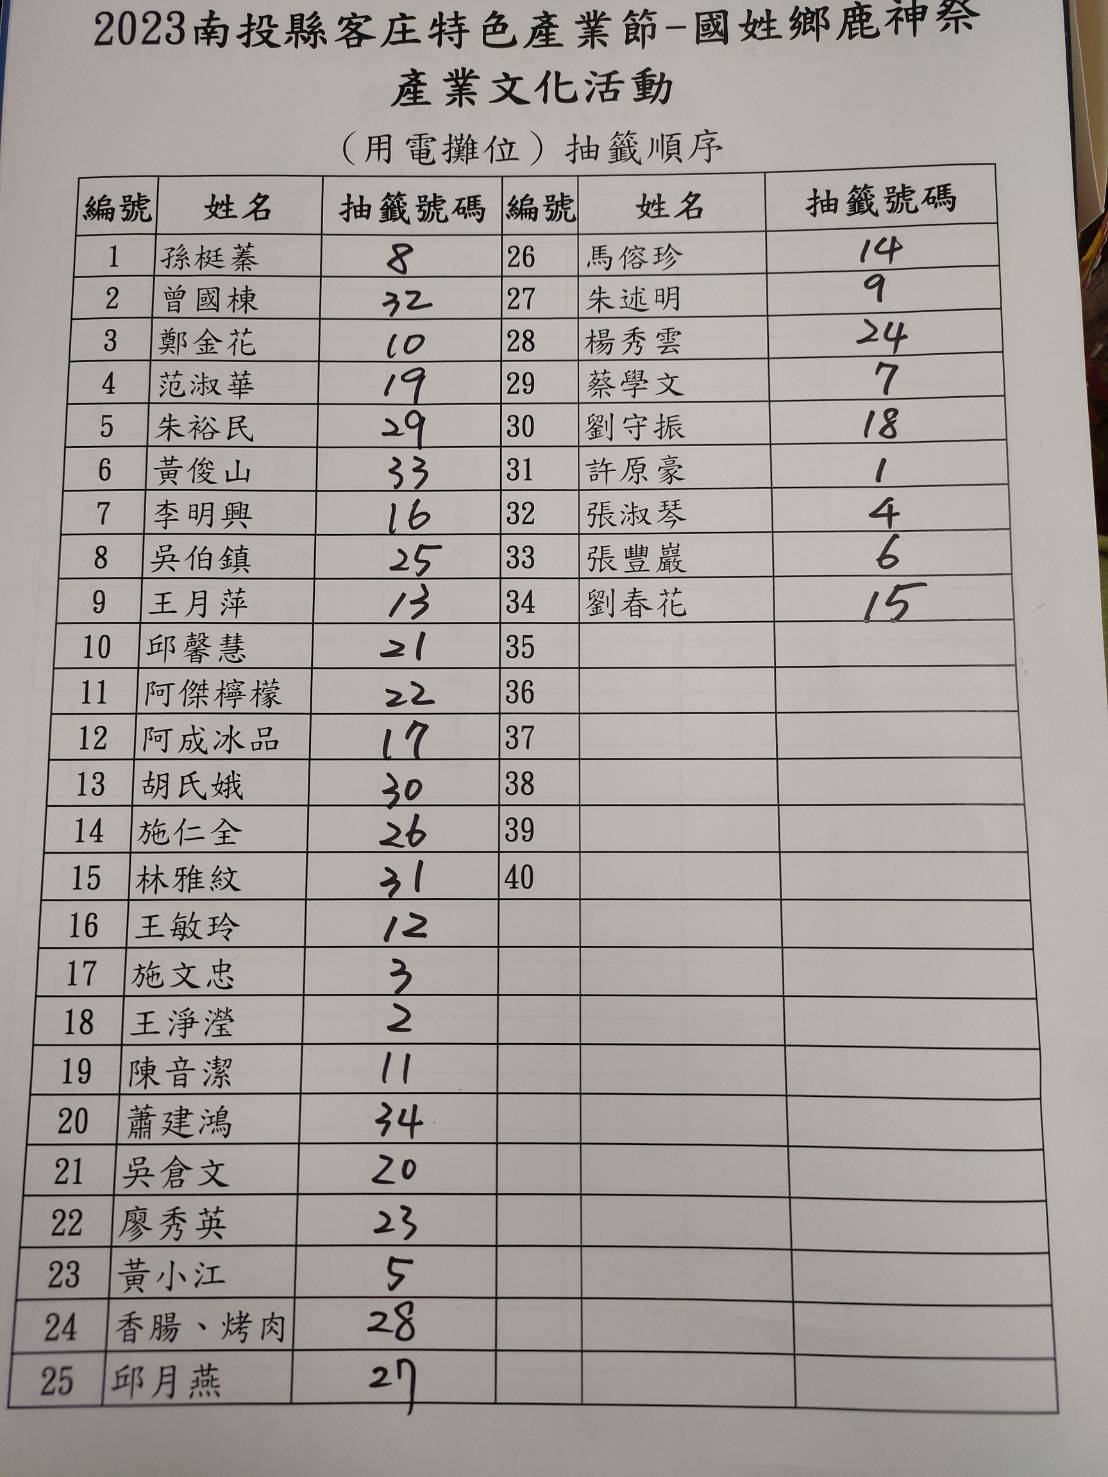 2023南投縣客庄特色產業節-國姓鄉鹿神祭
產業文化活動
（用電攤位）抽籤順序
編號 姓名 抽籤號碼 編號 姓名 抽籤號碼
1 孫梃蓁 8 26 馬傛珍 14
2 曾國棟 32 27 朱述明 9
3 鄭金花 10 28 楊秀雲 24
4 范淑華 19 29 蔡學文 7
5 朱裕民 29 30 劉守振 18
6 黃俊山 33 31 許原豪 1
7 李明興 16 32 張淑琴 4
8 吳伯鎮 25 33 張豐巖 6
9 王月萍 13 34 劉春花 15
10 邱馨慧 21 35
11 阿傑檸檬 22 36
12 阿成冰品 17 37
13 胡氏娥 30 38
14 施仁全 26 39
15 林雅紋 31 40
16 王敏玲 12
17 施文忠 3
18 王淨瀅 2
19 陳音潔 11
20 蕭建鴻 34
21 吳倉文 20
22 廖秀英 23
23 黃小江 5
24 香腸、烤肉 28
25 邱月燕 27